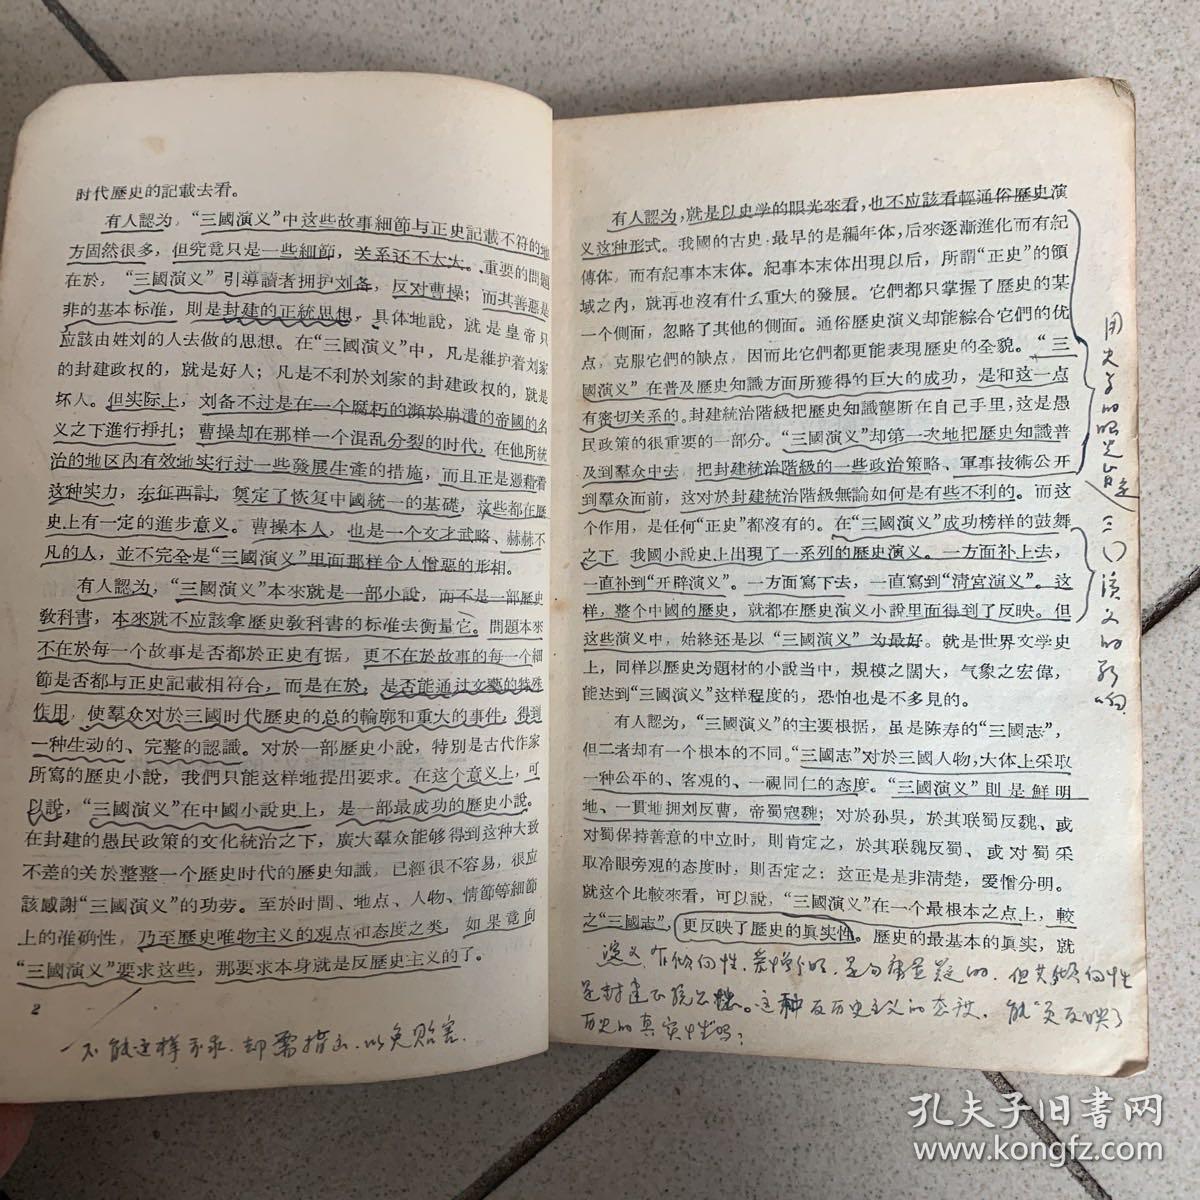 时代歷史的記載去看。
有人認为，“三國演义”中这些故事細節与正史記載不符的地
方固然很多，但究竟只是一些細節，关系还不太大。重要的問題
在於，“三國演义”引導讀者拥护刘备，反对曹操；而其善惡是
非的基本标准，則是封建的正統思想，具体地說，就是皇帝只
应該由姓刘的人去做的思想。在“三國演义”中，凡是維护着刘家
的封建政权的，就是好人；凡是不利於刘家的封建政权的，就是
坏人。但实际上，刘备不过是在一个腐朽的瀕於崩潰的帝國的名
义之下進行掙扎；曹操却在那样一个混乱分裂的时代，在他所統
治的地区内有效地实行过一些發展生產的措施，而且正是憑藉着
这种实力，东征西討，奠定了恢复中國統一的基礎，这些都在歷
史上有一定的進步意义。曹操本人，也是一个文才武略、赫赫不
凡的人，並不完全是“三國演义”里面那样令人憎惡的形相。
有人認为，“三國演义”本來就是一部小說，而不是一部歷史
敎科書，本來就不应該拿歷史敎科書的标准去衡量它。問題本來
不在於每一个故事是否都於正史有据，更不在於故事的每一个細
節是否都与正史記載相符合，而是在於，是否能通过文藝的特殊
作用，使羣众对於三國时代歷史的总的輪廓和重大的事件，得到
一种生动的、完整的認識。对於一部歷史小說，特別是古代作家
所寫的歷史小說，我們只能这样地提出要求。在这个意义上，可
以說，“三國演义”在中國小說史上，是一部最成功的歷史小說。
在封建的愚民政策的文化統治之下，廣大羣众能够得到这种大致
不差的关於整整一个歷史时代的歷史知識，已經很不容易，很应
該感謝“三國演义”的功劳。至於时間、地点、人物、情節等細節
上的准确性，乃至歷史唯物主义的观点和态度之类，如果竟向
“三國演义”要求这些，那要求本身就是反歷史主义的了。
2
不能这样要求，却需指出，以免贻害。
有人認为，就是以史学的眼光來看，也不应該看輕通俗歷史演
义这种形式。我國的古史，最早的是編年体，后來逐漸進化而有紀
傳体，而有紀事本末体。紀事本末体出現以后，所謂“正史”的領
域之內，就再也沒有什么重大的發展。它們都只掌握了歷史的某
一个側面，忽略了其他的側面。通俗歷史演义却能綜合它們的优
点，克服它們的缺点，因而比它們都更能表現歷史的全貌。“三
國演义”在普及歷史知識方面所獲得的巨大的成功，是和这一点
有密切关系的。封建統治階級把歷史知識壟断在自己手里，这是愚
民政策的很重要的一部分。“三國演义”却第一次地把歷史知識普
及到羣众中去，把封建統治階級的一些政治策略、軍事技術公开
到羣众面前，这对於封建統治階級無論如何是有些不利的。而这
个作用，是任何“正史”都沒有的。在“三國演义”成功榜样的鼓舞
之下，我國小說史上出現了一系列的歷史演义。一方面补上去，
一直补到“开辟演义”。一方面寫下去，一直寫到“清宮演义”。这
样，整个中國的歷史，就都在歷史演义小說里面得到了反映。但
这些演义中，始終还是以“三國演义”为最好。就是世界文学史
上，同样以歷史为題材的小說当中，規模之闊大，气象之宏偉，
能达到“三國演义”这样程度的，恐怕也是不多見的。
有人認为，“三國演义”的主要根据，虽是陈寿的“三國志”，
但二者却有一个根本的不同。“三國志”对於三國人物，大体上采取
一种公平的、客观的、一視同仁的态度。“三國演义”則是鮮明
地、一貫地拥刘反曹，帝蜀寇魏；对於孙吳，於其联蜀反魏、或
对蜀保持善意的中立时，則肯定之，於其联魏反蜀、或对蜀采
取冷眼旁观的态度时，則否定之：这正是是非清楚，爱憎分明。
就这个比較來看，可以說，“三國演义”在一个最根本之点上，較
之“三國志”，更反映了歷史的眞实性。歷史的最基本的眞实，就
演义 有倾向性，爱憎分明，是勿庸置疑的，但其倾向性
是封建正统。这种反历史主义的态度，能“更反映了
历史的真实性”吗？
用史学的眼光肯定三口演义的影响
孔夫子旧書网
www.kongfz.com